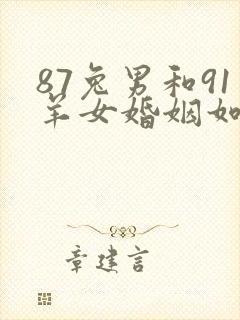 87兔男和91
羊女婚姻如
章建言